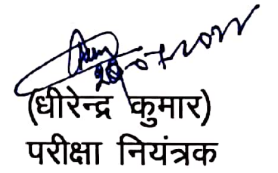 (धीरेन्द्र कुमार)
परीक्षा नियंत्रक